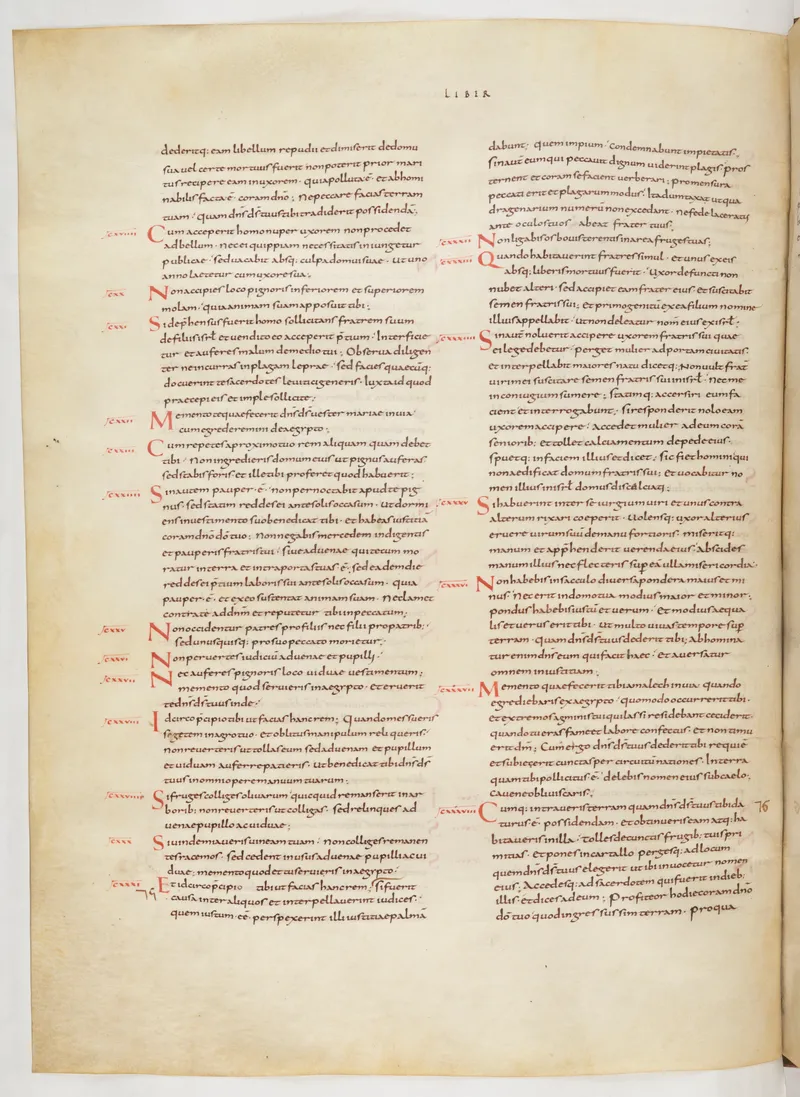 LIBER
dederitq; eam libellum repudii et dimiserit de domu
sua uel certe mortuus fuerit non poterit prior mari
tus recipere eam in uxorem · quia polluta ē · et abhomi
nabilis facta ē · coram dn̄o ; Ne peccare facias terram
tuam · quam dn̄s d̄s tuus tibi tradiderit possidendā ;
Cum acceperit homo nuper uxorem non procedet
ad bellum · nec ei quippiam necessitatis iniungetur
publicae · sed uacabit absq; culpa domui suae · ut uno
anno laetetur cum uxore sua ;
cxx Non accipies loco pignoris inferiorem et superiorem
molam · quia animam suam apposuit tibi ;
cxxi Si depræhensus fuerit homo sollicitans fratrem suum
de filiis isrł et uendito eo acceperit p̄tium · Interficie
tur et auferes malum de medio tui ; Obserua diligen
ter ne incurras in plagam leprae · sed facies quaecūq;
docuerint te sacerdotes leuitici generis · Iuxta id quod
praecepi eis et imple sollicite ;
cxxii Memento te quae fecerit dn̄s d̄s uester mariae in uia
cum egrederemini de aegypto ;
cxxiii Cum repetes a proximo tuo rem aliquam quam debet
tibi · Non ingredieris domum eius ut pignus auferas
sed stabis foris et ille tibi proferet quod habuerit ;
cxxiiii Sin autem pauper · ē · non pernoctabit apud te pig
nus · sed statim reddes ei ante solis occasum · Ut dormi
ens in uestimento suo benedicat tibi · et habeas iustitiā
coram dn̄o dō tuo ; Non negabis mercedem indigentis
et pauperis fratris tui / siue aduenae qui tecum mo
ratur in terra et intra portas tuas ·ē· sed eadem die
reddes ei p̄tium laboris sui ante solis occasum · quia
pauper ·ē· et ex eo sustentat animam suam · Ne clamet
contra te ad dn̄m et reputetur tibi in peccatum ;
cxxv Non occidentur patres pro filiis nec filii pro patrib; ·
sed unusquisq; pro suo peccato morietur ;
cxxvi Non peruertes iudiciū aduenae et pupilli ·
cxxvii Nec auferes pignoris loco uiduae uestimentum ;
memento quod seruieris in aegypto · et eruerit
te dn̄s d̄s tuus inde ·
cxxviii Idcirco p̄cipio tibi ut facias hanc rem ; Quando messueris
segetem in agro tuo · et oblitus manipulum reliqueris ·
non reuerteris ut tollas eum sed aduenam et pupillum
et uiduam auferre patieris · Ut benedicat tibi dn̄s d̄s
tuus in omni opere manuum tuarum ;
Si fruges colliges oliuarum quicquid remanserit in ar
borib; non reuerteris ut colligas · sed relinques ad
uenae pupillo ac uiduae ;
cxxx Si uindemiaueris uineam tuam / non colliges remanen
tes racemos · sed cedent in usus aduenae pupilli ac ui
duae ; memento quod et tu seruieris in aegypto ·
cxxxi Et idcirco p̄cipio tibi ut facias hanc rem ; Si fuerit
causa inter aliquos et interpellauerint iudices ·
quem iustum eē · perspexerint illi iustitiae palmā
dabunt ; quem impium · Condemnabunt impietatis ·
Sin autē eum qui peccauit dignum uiderint plagis · pros
ternent et coram se facient uerberari ; pro mensura
peccati erit et plagarum modus · Ita dumtaxat ut qua
dragenarium numerū non excedant · ne fede laceratus
ante oculos tuos · abeat frater tuus ·
cxxxii Non ligabis os bouis terentis in area fruges tuas ;
cxxxiii Quando habitauerint fratres simul · et unus ex eis
absq; liberis mortuus fuerit · Uxor defuncti non
nubet alteri · sed accipiet eam frater eius et suscitabit
semen fratris sui ; et primogenitū ex ea filium nomine
illius appellabit · ut non deleatur nom̄ eius ex isrł ;
cxxxiiii Sin autē noluerit accipere uxorem fratris sui quae
ei lege debetur · perget mulier ad portam ciuitatis
et interpellabit maiores natu dicetq; Non uult frāt
uiri mei suscitare semen fratris sui in isrł · nec me
in coniugium sumere ; statimq; accersiri eum fa
cient et interrogabunt ; si responderit nolo eam
uxorem accipere / Accedet mulier ad eum corā
seniorib; et tollet calciamentum de pede eius ·
spuetq; in faciem illius et dicet ; sic fiet homini qui
non aedificat domum fratris sui ; et uocabitur no
men illius in isrł domus discalciati ;
cxxxv Si habuerint inter se iurgium uiri et unus contra
alterum rixari coeperit · Uolensq; uxor alterius
eruere uirum suū de manu fortioris · miseritq;
manum et app̄henderit uerenda eius · Abscides
manum illius nec flecteris sup̄ ea ulla misericordia ·
cxxxvi Non habebis in sacculo diuersa pondera maius et mi
nus · Nec erit in domo tua modius maior et minor ;
pondus habebis iustū et uerum · et modius aequa
lis et uerus erit tibi · Ut multo uiuas tempore sup̄
terram · quam dn̄s d̄s tuus dederit tibi ; Abhomina
tur enim dn̄s eum qui facit haec · et auersatur
omnem iniustitiam ;
cxxxvii Memento quae fecerit tibi amalech in uia · quando
egrediebaris ex aegypto · quomodo occurrerit tibi ·
et extremos agminis tui qui lassi residebant ceciderit ·
quando tu eras fame et labore confectus · et non timu
erit dm̄ ; Cum ergo dn̄s d̄s tuus dederit tibi requiē
et subiecerit cunctas per circuitū nationes · In terra
quam tibi pollicitus ·ē· delebis nomen eius sub caelo ·
caue ne obliuiscaris ;
cxxxviii Cumq; intraueris terram quam dn̄s d̄s tuus tibi da
turus ·ē· possidendam · et obtinueris eam atq; ha
bitaueris in illa · Tolles de cunctis frugib; tuis pri
mitias · et pones in cartallo pergesq; ad locum
quem dn̄s d̄s tuus elegerit ut ibi inuocetur nomen
eius ; Accedesq; ad sacerdotem qui fuerit in dieb;
illis · et dices ad eum ; Profiteor hodie coram dn̄o
dō tuo quod ingressus sim terram · pro qua
76